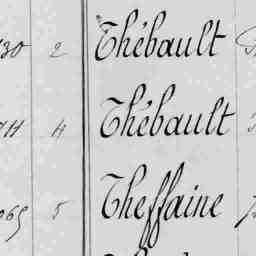 30 2 Thébault
711 4 Thébault
069 5 Theffaine